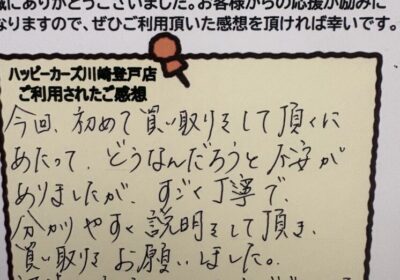 誠にありがとうございました。お客様からの応援が励みに
なりますので、ぜひご利用頂いた感想を頂ければ幸いです。
ハッピーカーズ川崎登戸店
ご利用されたご感想
今回、初めて買い取りをして頂くに
あたって、どうなんだろうと不安が
ありましたが、すごく丁寧で、
分かりやすく説明をして頂き、
買い取りをお願いしました。